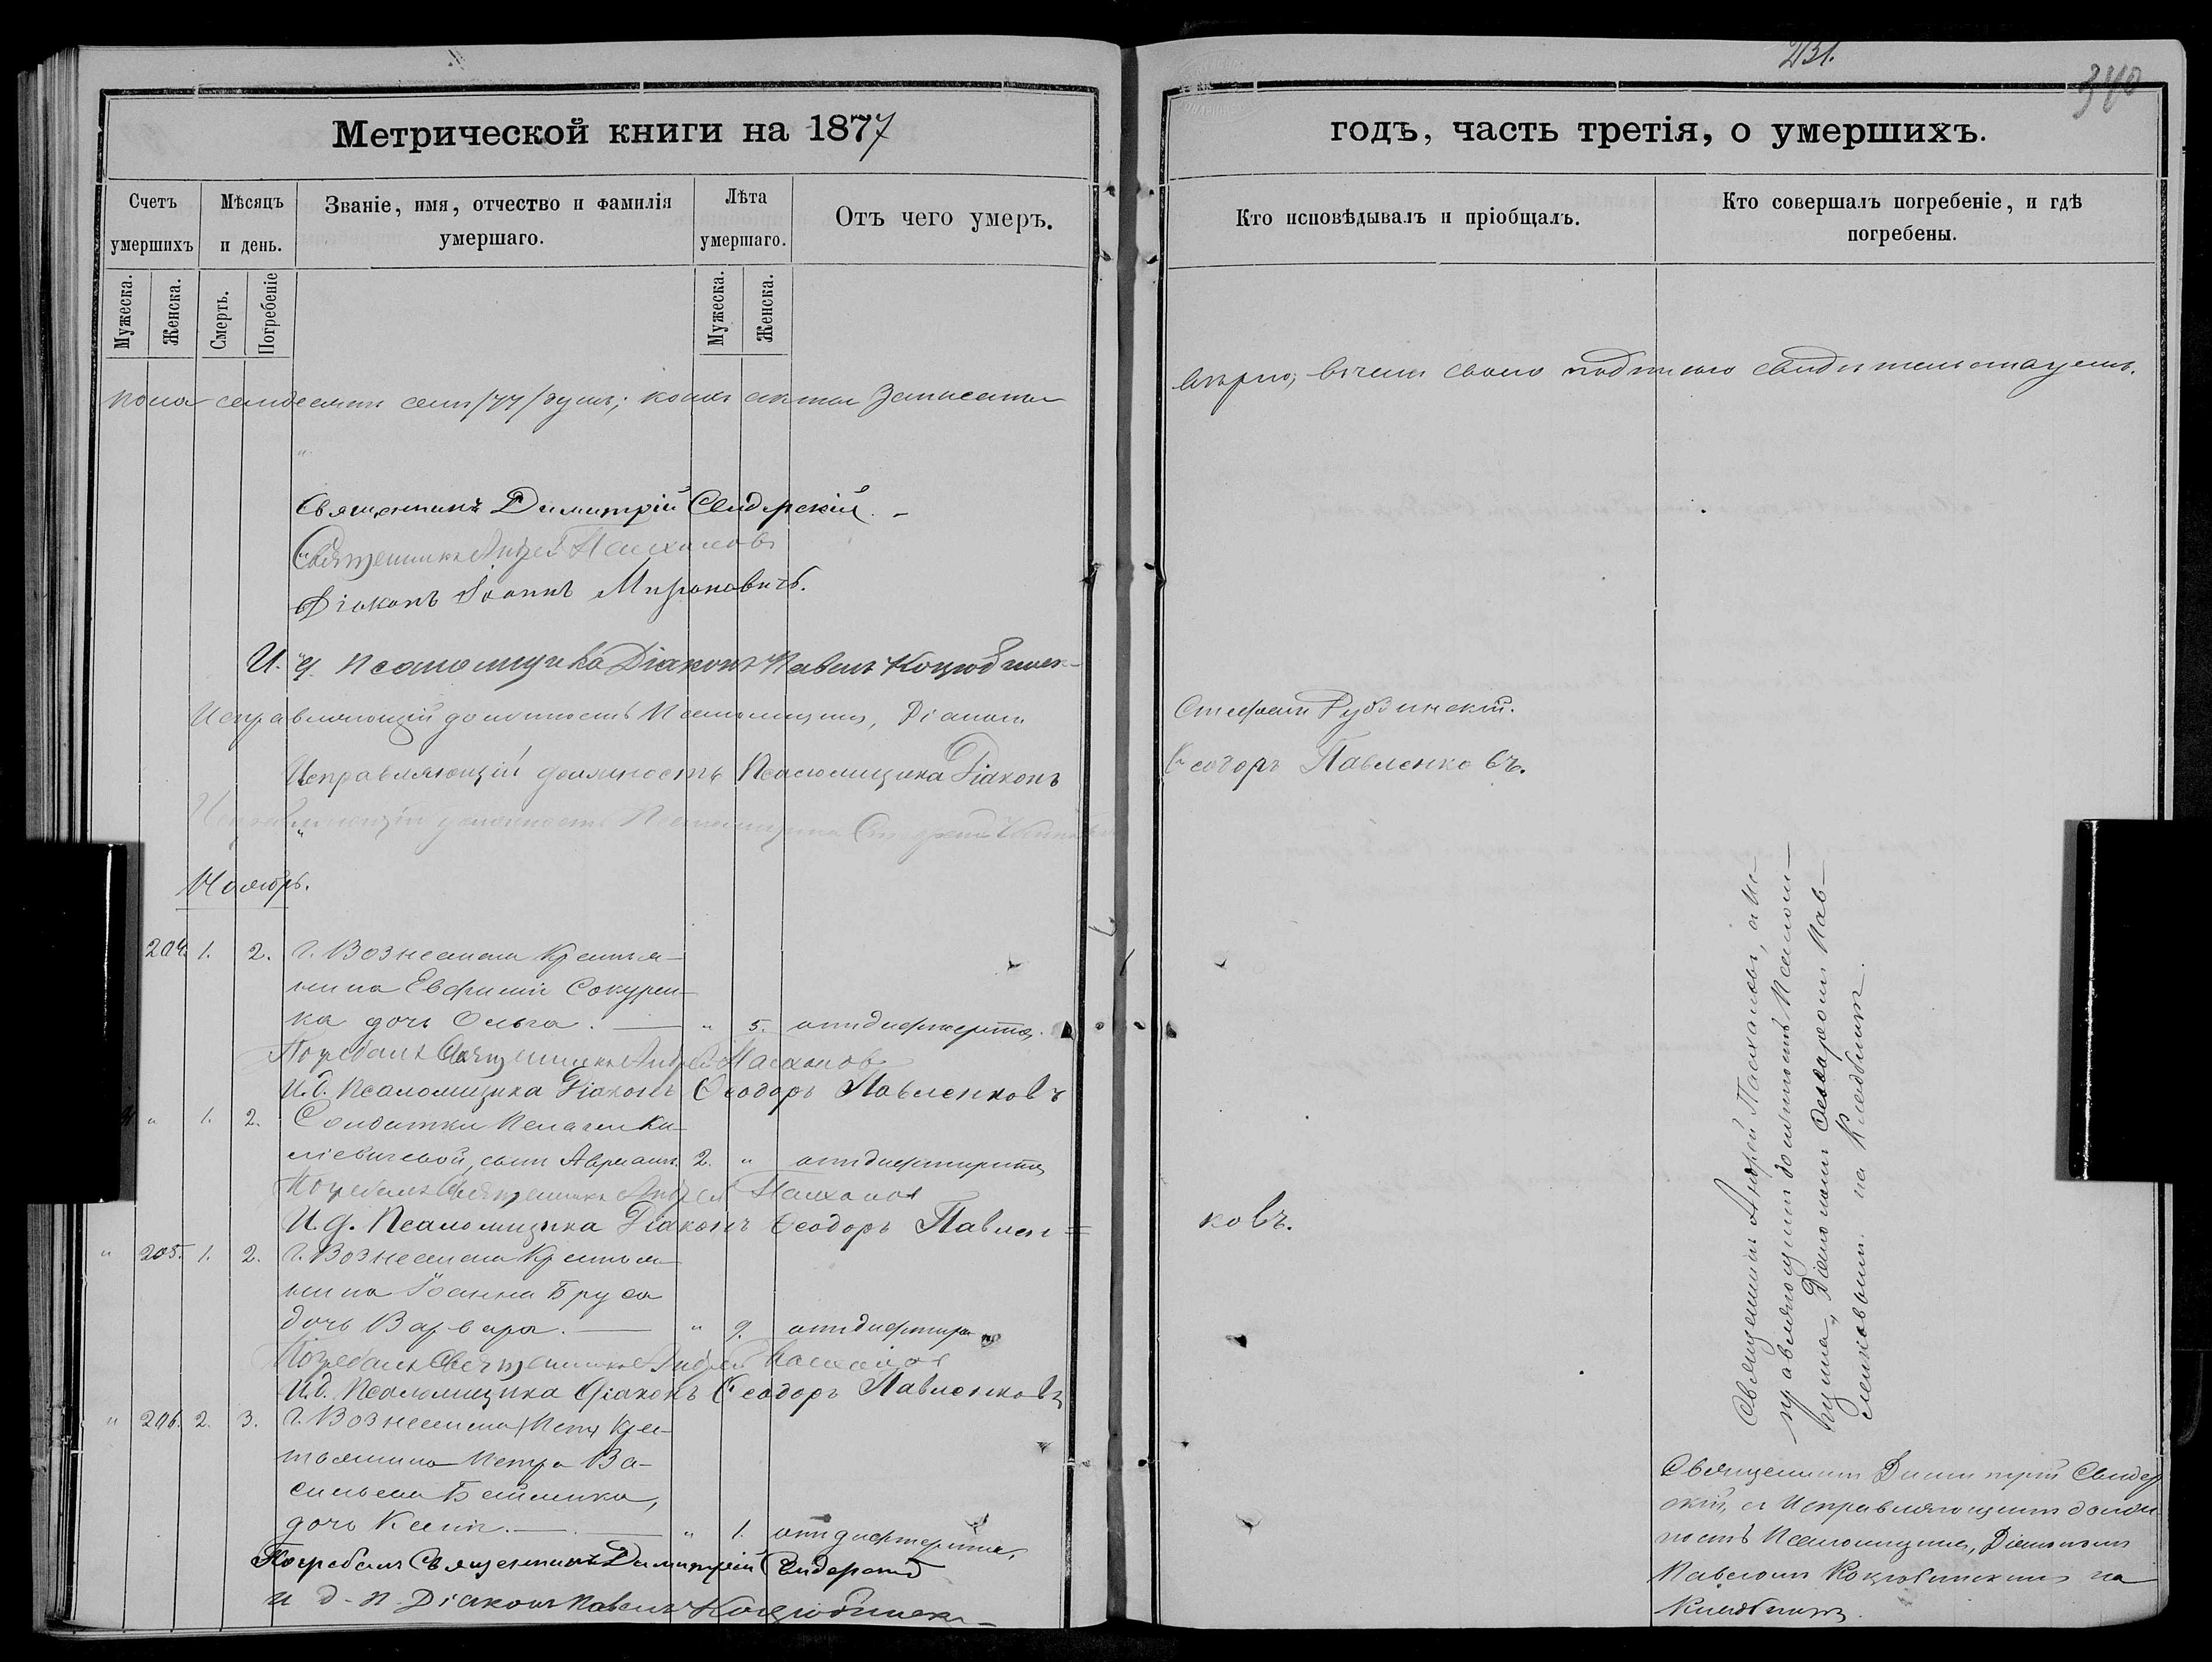 231.
340
Метрической книги на 1877
годъ, часть третія, о умершихъ.
Счетъ умершихъ
Мѣсяцъ и день.
Званіе, имя, отчество и фамилія умершаго.
Лѣта умершаго.
Отъ чего умеръ.
Кто исповѣдывалъ и пріобщалъ.
Кто совершалъ погребеніе, и гдѣ погребены.
Мужеска.
Женска.
Смерть.
Погребеніе
Мужеска.
Женска.
пола семдесятъ семь /77/ душъ; коихъ акты записаны
вѣрно; въ чемъ своею подписью свидѣтельствуемъ.
Священникъ Димитрій Сендерскій.
Священникъ Андрей
Діаконъ Іоаннъ Мироновичъ.
И. д. Псаломщика Діаконъ Павелъ
Исправляющій должность Псаломщика, Діаконъ
Стефанъ Рубзинскій.
Исправляющій должность Псаломщика Діаконъ
Ѳеодоръ Павленковъ.
Исправляющій должность Псаломщика
Ноябрь.
204. 1. 2. г. Вознесенска Крестья-
нина Евфимія Сокурен-
ка дочь Ольга. — " 5. отъ дифтерита.
Погребалъ Священникъ Андрей
И. д. Псаломщика Діаконъ Ѳеодоръ Павленковъ
" 1. 2. Солдатки Пелагеи
сынъ 2. " отъ дифтерита
Погребалъ Священникъ Андрей
И. д. Псаломщика Діаконъ Ѳеодоръ Павлен=
ковъ.
" 205. 1. 2. г. Вознесенска Крестья-
нина Іоанна Бруса
дочь Варвара. — " 9. отъ дифтерита
Погребалъ Священникъ Андрей
И. д. Псаломщика Діаконъ Ѳеодоръ Павленковъ
" 206. 2. 3. г. Вознесенска Крес-
тьянина Петра Ва-
сильева
дочь Ксенія. — " 1. отъ дифтерита,
Погребалъ Священникъ Димитрій Сендерскій
И д. П. Діаконъ Павелъ
Священникъ Андрей съ Ис-
правляющимъ должность Псалом-
щика, Діакономъ Ѳеодоромъ Пав-
ленковымъ. на Кладбищѣ.
Священникъ Димитрій Сендер
скій, съ Исправляющимъ долж
ность Псаломщика, Діакономъ
Павломъ на
Кладбищѣ.